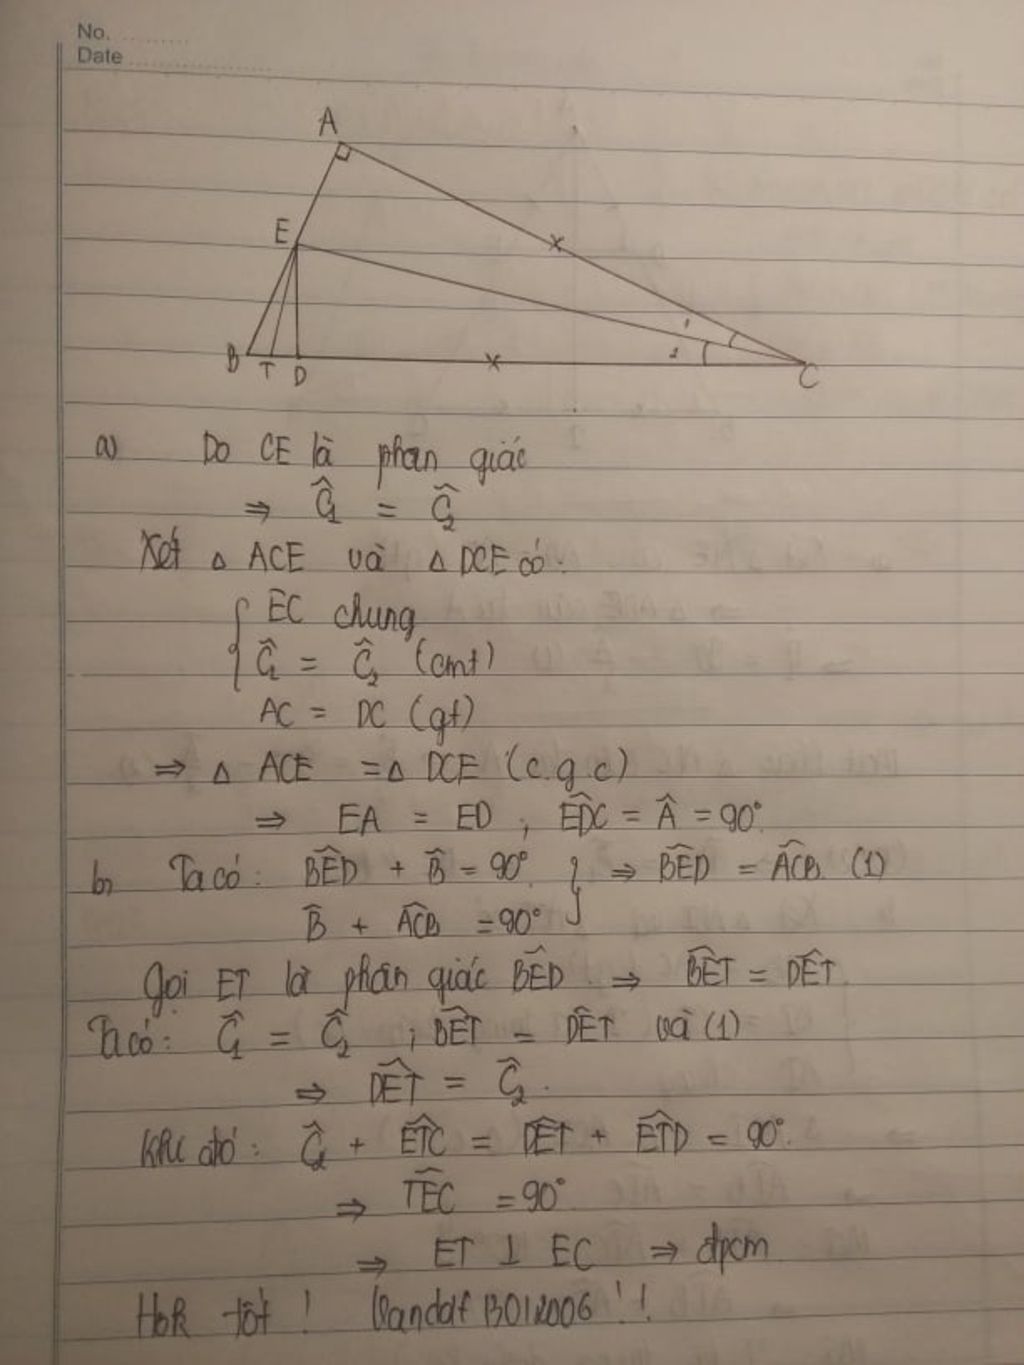 No. ..........
Date ....................
A
E
1
2
B T D
C
a) Do CE là phân giác
⇒ Ĉ₁ = Ĉ₂
Xét △ ACE và △ DCE có:
EC chung
Ĉ₁ = Ĉ₂ (cmt)
AC = DC (gt)
⇒ △ ACE = △ DCE (c.g.c)
⇒ EA = ED ; EDC = Â = 90°
b, Ta có: BED + B̂ = 90° } ⇒ BED = ACB (1)
B̂ + ACB = 90°
Gọi ET là phân giác BED ⇒ BET = DET
Ta có: Ĉ₁ = Ĉ₂ ; BET = DET và (1)
⇒ DET = Ĉ₂.
Khi đó: Ĉ₂ + ETC = DET + ETD = 90°.
⇒ TEC = 90°
⇒ ET ⊥ EC ⇒ đpcm
Học tốt ! 13012006 ! !